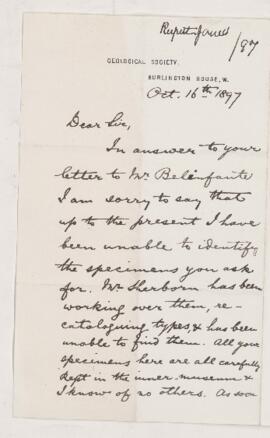 Rupert Jones
/97
GEOLOGICAL SOCIETY,
BURLINGTON HOUSE, W.
Oct. 16th 1897
Dear Sir,
In answer to your
letter to Mr Belinfante
I am sorry to say that
up to the present I have
been unable to identify
the specimens you ask
for. Mr Sherborn has been
working over them, re-
cataloguing types & has been
unable to find them. All your
specimens here are all carefully
kept in the inner museum &
I know of no others. As soon